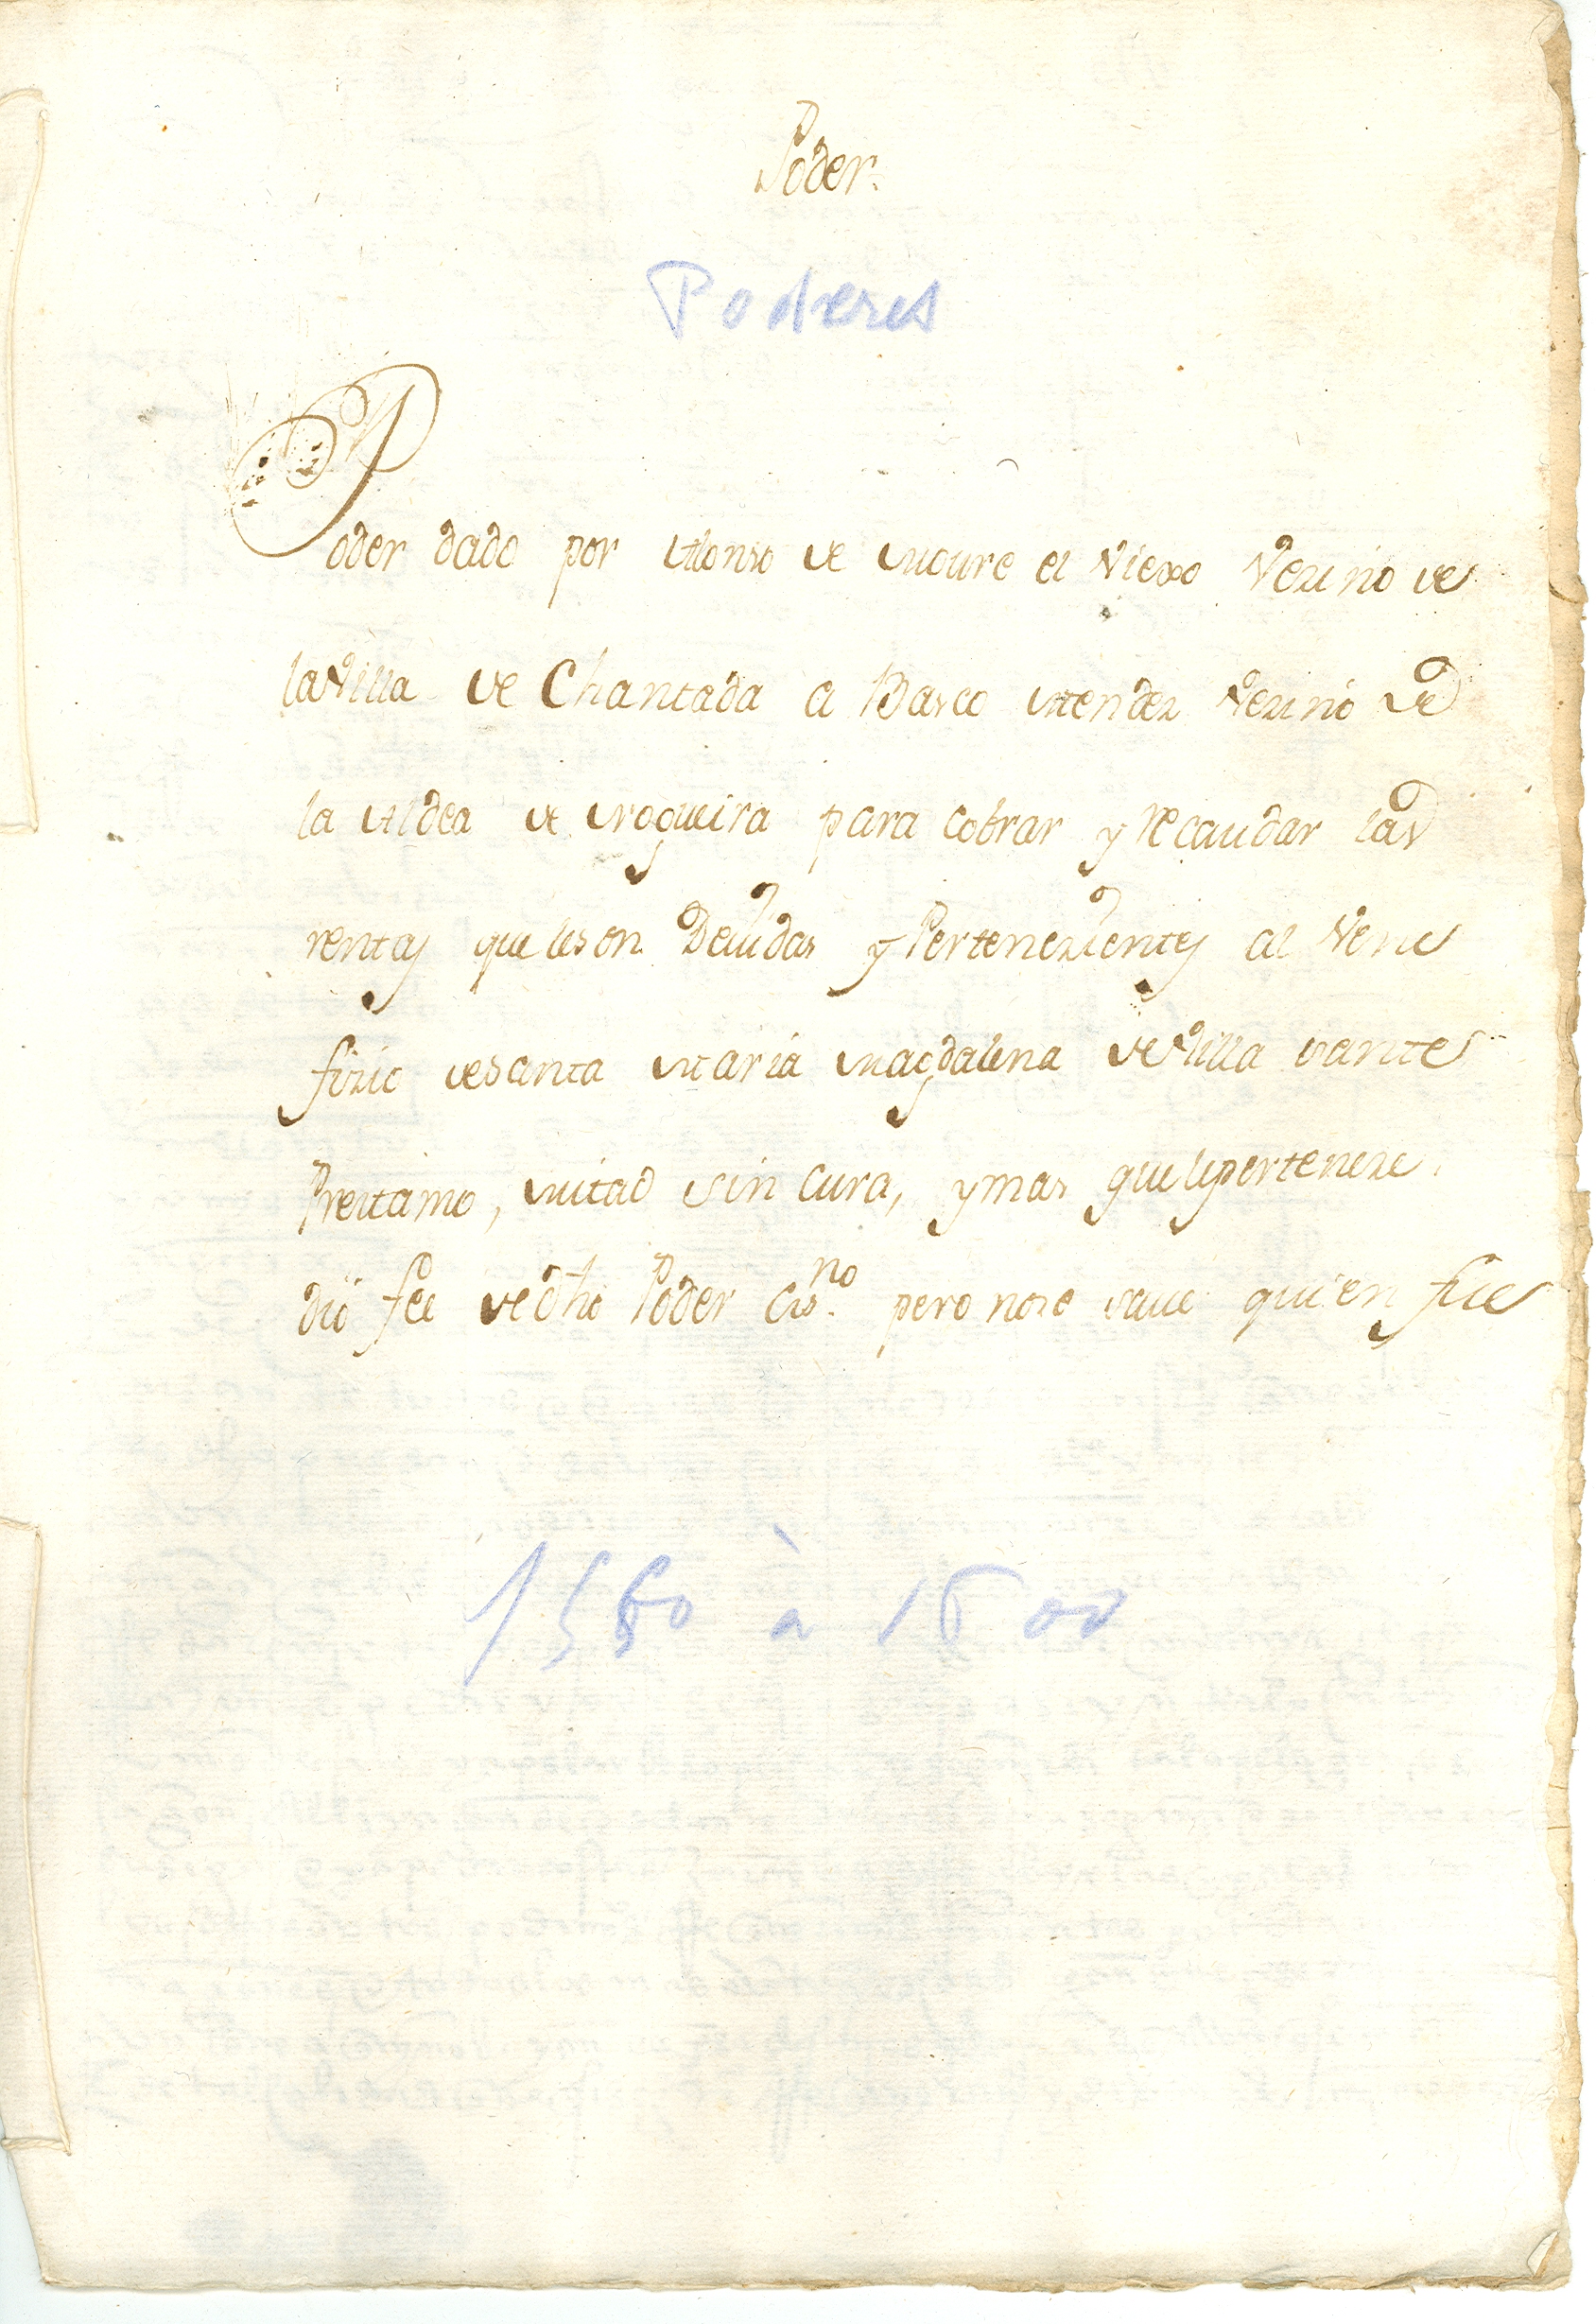 Poder.
Poderes
Poder dado por Alonso de Moure el Viexo Vezino de
la Villa de Chantada a Basco Mendez Vezino de
la Aldea de Nogueira para Cobrar y recaudar las
rentas que leson Deuidas y Pertenezientes al Vene
fizio desanta Maria Magdalena de Villa vsante
Prestamo, Mitad sin Cura, ymas que leperteneze.
dió fee de dho Poder Esno. pero nose saue quien fue
1560 à 1600